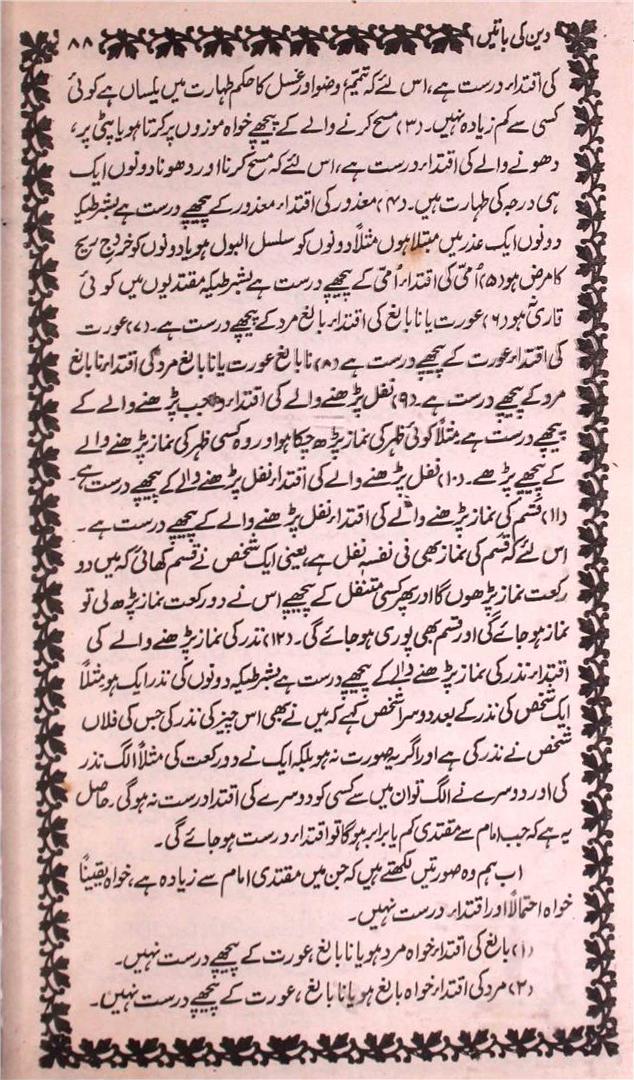 دین کی باتیں
۸۸
کی اقتداء درست ہے، اس لئے کہ تیمّم، وضو اور غسل کا حکم طہارت میں یکساں ہے کوئی
کسی سے کم زیادہ نہیں۔ (۳) مسح کرنے والے کے پیچھے خواہ موزوں پر کرتا ہو یا پٹی پر،
دھونے والے کی اقتداء درست ہے، اس لئے کہ مسح کرنا اور دھونا دونوں ایک
ہی درجہ کی طہارت ہیں۔ (۴) معذور کی اقتداء معذور کے پیچھے درست ہے بشرطیکہ
دونوں ایک عذر میں مبتلا ہوں مثلاً دونوں کو سلسل البول ہو یا دونوں کو خروج ریح
کا مرض ہو (۵) اُمّی کی اقتداء اُمّی کے پیچھے درست ہے بشرطیکہ مقتدیوں میں کوئی
قاری نہ ہو (۶) عورت یا نابالغ کی اقتداء بالغ مرد کے پیچھے درست ہے۔ (۷) عورت
کی اقتداء عورت کے پیچھے درست ہے (۸) نابالغ عورت یا نابالغ مرد کی اقتداء نابالغ
مرد کے پیچھے درست ہے۔ (۹) نفل پڑھنے والے کی اقتداء واجب پڑھنے والے کے
پیچھے درست ہے مثلاً کوئی ظہر کی نماز پڑھ چکا ہو اور وہ کسی ظہر کی نماز پڑھنے والے
کے پیچھے پڑھے۔ (۱۰) نفل پڑھنے والے کی اقتداء نفل پڑھنے والے کے پیچھے درست ہے۔
(۱۱) قسم کی نماز پڑھنے والے کی اقتداء نفل پڑھنے والے کے پیچھے درست ہے۔
اس لئے کہ قسم کی نماز بھی فی نفسہ نفل ہے، یعنی ایک شخص نے قسم کھائی کہ میں دو
رکعت نماز پڑھوں گا اور پھر کسی متنفل کے پیچھے اس نے دو رکعت نماز پڑھ لی تو
نماز ہو جائے گی اور قسم بھی پوری ہو جائے گی۔ (۱۲) نذر کی نماز پڑھنے والے کی
اقتداء نذر کی نماز پڑھنے والے کے پیچھے درست ہے بشرطیکہ دونوں کی نذر ایک ہو مثلاً
ایک شخص کی نذر کے بعد دوسرا شخص کہے کہ میں نے بھی اس چیز کی نذر کی جس کی فلاں
شخص نے نذر کی ہے اور اگر یہ صورت نہ ہو بلکہ ایک نے دو رکعت کی مثلاً الگ نذر
کی اور دوسرے نے الگ تو ان میں سے کسی کو دوسرے کی اقتداء درست نہ ہوگی۔ حاصل
یہ ہے کہ جب امام سے مقتدی کم یا برابر ہوگا تو اقتداء درست ہو جائے گی۔
اب ہم وہ صورتیں لکھتے ہیں کہ جن میں مقتدی امام سے زیادہ ہے، خواہ یقیناً
خواہ احتمالاً اور اقتداء درست نہیں۔
(۱) بالغ کی اقتداء خواہ مرد ہو یا نابالغ، عورت کے پیچھے درست نہیں۔
(۲) مرد کی اقتداء خواہ بالغ ہو یا نابالغ، عورت کے پیچھے درست نہیں۔